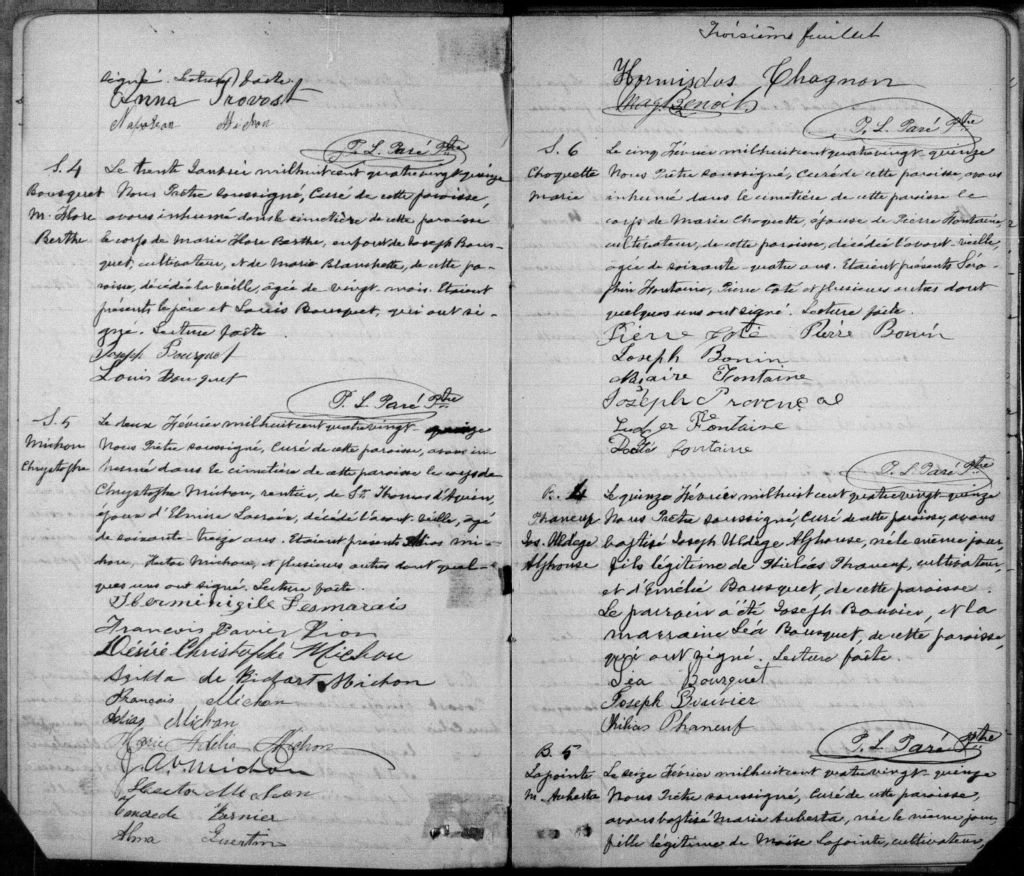 signé. Lecture faite.
Anna Provost
Napoléon Michon
P. L. Paré Ptre
S. 4
Bousquet
M. Flore
Berthe
Le trente Janvier mil huit cent quatre vingt quinze
Nous Prêtre soussigné, Curé de cette paroisse,
avons inhumé dans le cimetière de cette paroisse
le corps de Marie Flore Berthe, enfant de Joseph Bous-
quet, cultivateur, et de Marie Blanchette, de cette pa-
roisse, décédée la veille, agée de vingt mois. Etaient
présents le père et Louis Bousquet, qui ont si-
gné. Lecture faite.
Joseph Bousquet
Louis Bouquet
P. L. Paré Ptre
S. 5
Michon
Chrystophe
Le deux Février mil huit cent quatre vingt-quinze
Nous Prêtre soussigné, Curé de cette paroisse, avons in-
humé dans le cimetière de cette paroisse le corps de
Chrystophe Michon, rentier, de St Thomas d'Aquin,
époux d'Elmire Lacroix, décédé l'avant-veille, agé
de soixante-treize ans. Etaient présents Elias Mi-
chon, Hector Michon, et plusieurs autres dont quel-
ques uns ont signé. Lecture faite.
Herminigile Desmarais
Francois Xavier Dion
Désiré Christophe Michon
de Michon
François Michon
Elias Michon
Marie Adélia Michon
J. A. Michon
Hector Michon
Bernier
Alma Guertin
Troisième feuillet
Hormisdas Chagnon
Benoit
P. L. Paré Ptre
S. 6
Choquette
Marie
Le cinq Février mil huit cent quatre vingt-quinze
Nous Prêtre soussigné, Curé de cette paroisse, avons
inhumé dans le cimetière de cette paroisse le
corps de Marie Choquette, épouse de Pierre Fontaine,
cultivateur, de cette paroisse, décédée l'avant-veille,
agée de soixante-quatre ans. Etaient présents Séra-
phin Fontaine, Pierre Coté et plusieurs autres dont
quelques uns ont signé. Lecture faite.
Pierre Coté Pierre Bonin
Joseph Bonin
Fontaine
Joseph Provencal
Ludger Fontaine
Fontaine
P. L. Paré Ptre
B. 4
Phaneuf
Jos. Uldège
Alphonse
Le quinze Février mil huit cent quatre vingt-quinze
Nous Prêtre soussigné, Curé de cette paroisse, avons
baptisé Joseph Uldège Alphonse, né le même jour,
fils légitime de Phaneuf, cultivateur,
et d'Emélie Bousquet, de cette paroisse.
Le parrain a été Joseph Bouvier, et la
marraine Léa Bousquet, de cette paroisse,
qui ont signé. Lecture faite.
Léa Bousquet
Joseph Bouvier
Phaneuf
P. L. Paré Ptre
B. 5
Lapointe
M. Auberta
Le seize Février mil huit cent quatre vingt-quinze
Nous Prêtre soussigné, Curé de cette paroisse,
avons baptisé Marie Auberta, née le même jour,
fille légitime de Moïse Lapointe, cultivateur,